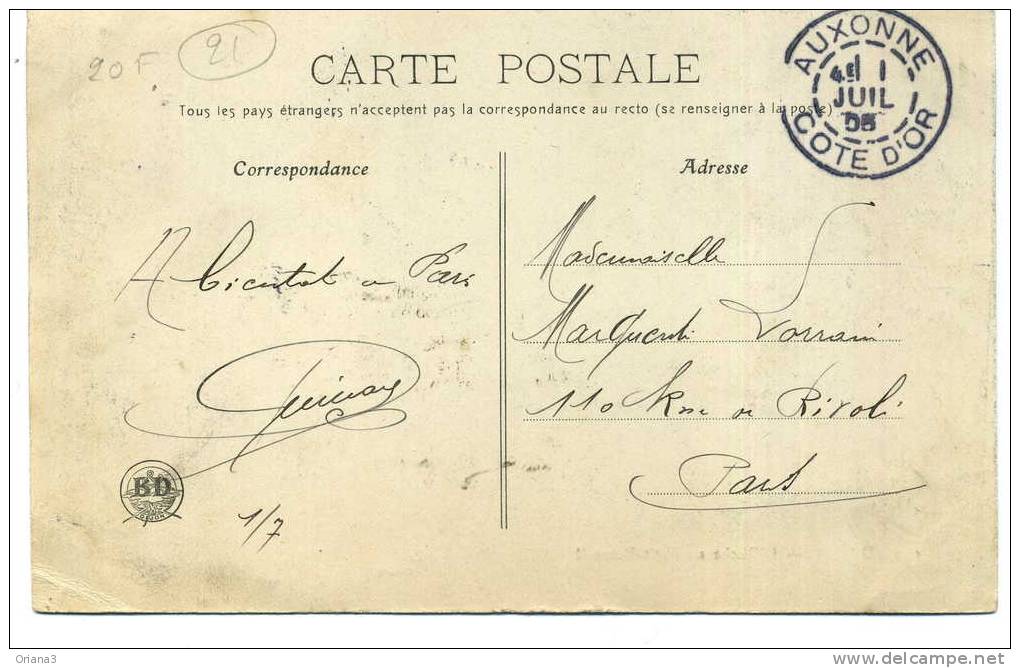 20F
21
CARTE POSTALE
Tous les pays étrangers n'acceptent pas la correspondance au recto (se renseigner à la poste)
AUXONNE
4E
1
JUIL
05
COTE D'OR
Correspondance
Adresse
A bientot a Paris
BD
DIJON
1/7
Mademoiselle
Marguerite Lorrain
110 Rue de Rivoli
Paris
Oriana3
www.delcampe.net